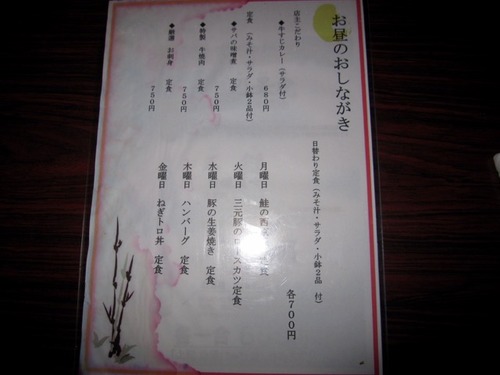 お昼のおしながき
店主こだわり
◆牛すじカレー（サラダ付）
６８０円
定食（みそ汁・サラダ・小鉢２品付）
◆サバの味噌煮　定食
７５０円
◆特製　牛焼肉　定食
７５０円
◆厳選　お刺身　定食
７５０円
日替わり定食（みそ汁・サラダ・小鉢２品　付）
各７００円
月曜日　鮭の西　食
火曜日　三元豚のロースカツ定食
水曜日　豚の生姜焼き　定食
木曜日　ハンバーグ　定食
金曜日　ねぎトロ丼　定食